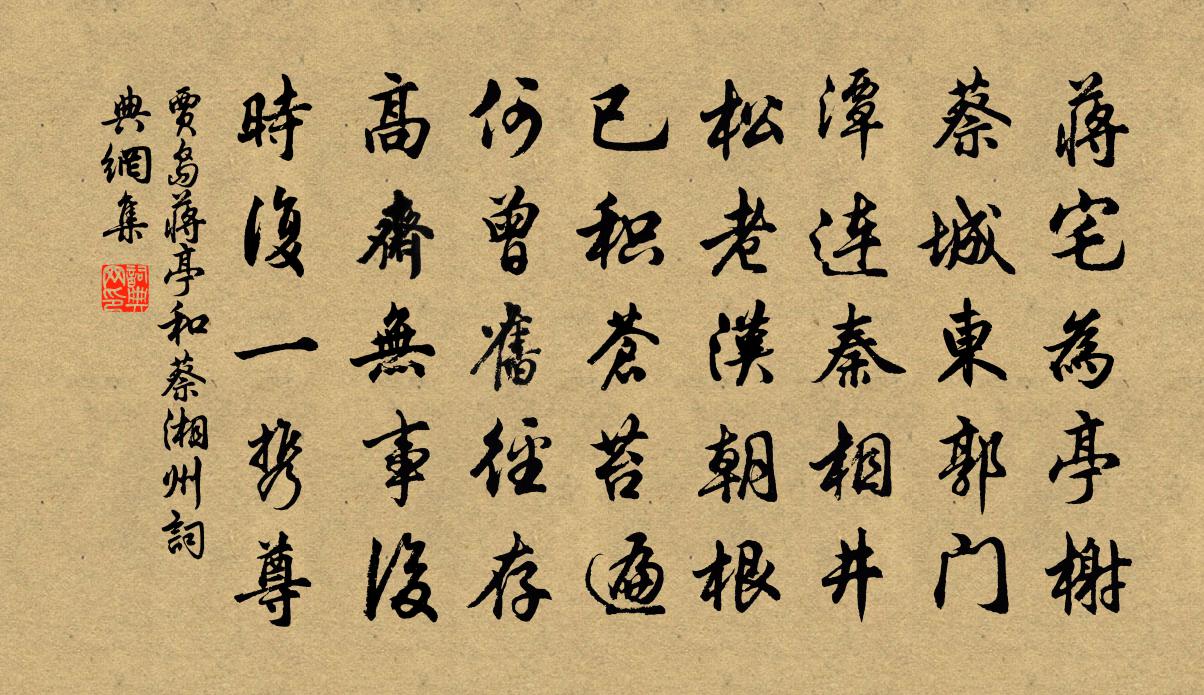 蔣宅為亭榭
蔡城東郭门
潭連秦相井
松老漢朝根
已积蒼苔遍
何曾舊徑存
高齋無事後
時復一携尊
賈島蔣亭和蔡湘州詞
典網集
詞典网印